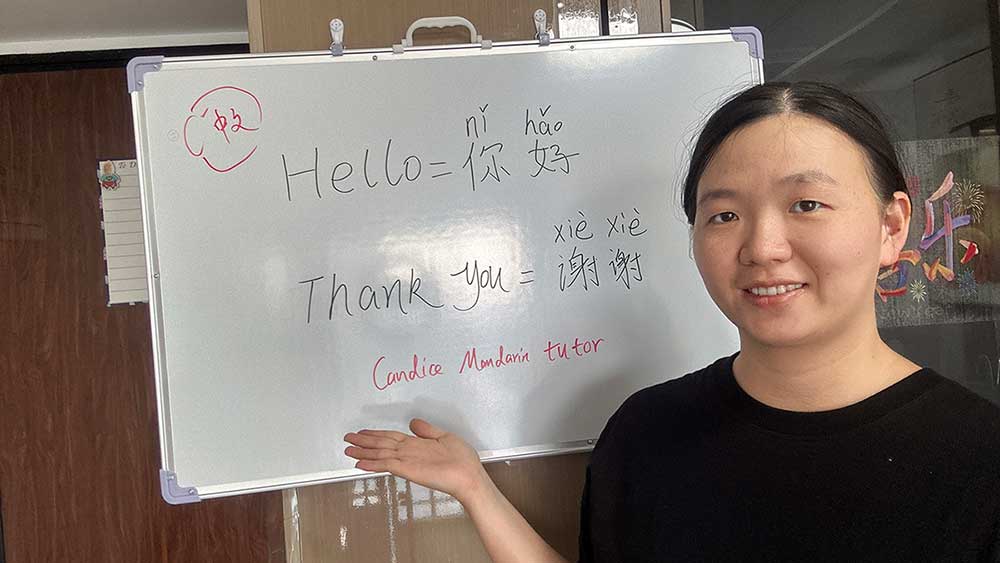 中文
nǐ hǎo
Hello = 你 好
xiè xiè
Thank you = 谢 谢
Candice Mandarin tutor
To D